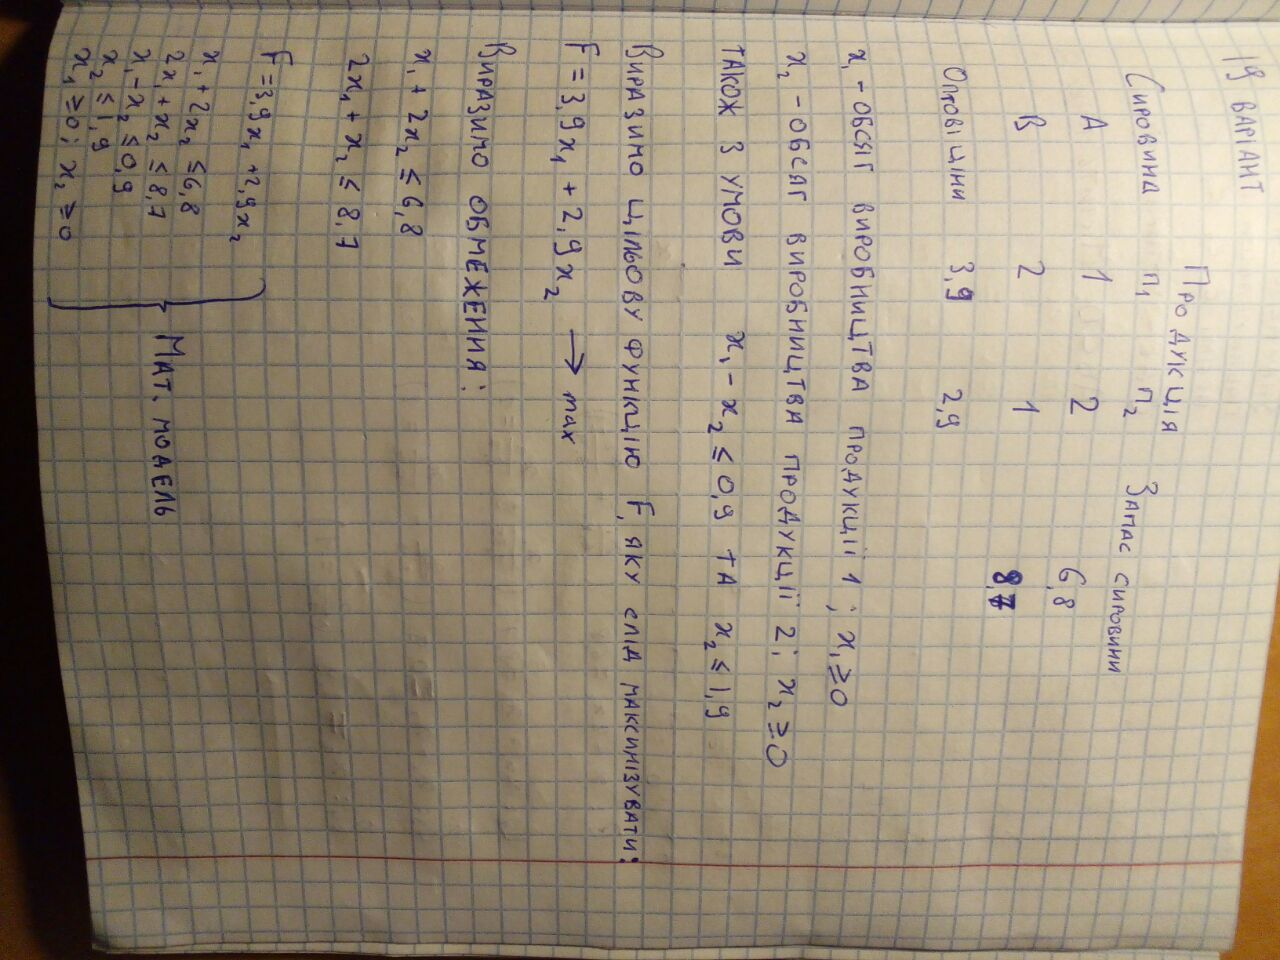 19 ВАРІАНТ
ПРОДУКЦІЯ
СИРОВИНА П1 П2 ЗАПАС СИРОВИНИ
А 1 2 6,8
В 2 1 8,7
ОПТОВІ ЦІНИ 3,9 2,9
x₁ - ОБСЯГ ВИРОБНИЦТВА ПРОДУКЦІЇ 1; x₁ ≥ 0
x₂ - ОБСЯГ ВИРОБНИЦТВА ПРОДУКЦІЇ 2; x₂ ≥ 0
ТАКОЖ З УМОВИ x₁ - x₂ ≤ 0,9 ТА x₂ ≤ 1,9
ВИРАЗИМО ЦІЛЬОВУ ФУНКЦІЮ F, ЯКУ СЛІД МАКСИМІЗУВАТИ:
F = 3,9x₁ + 2,9x₂ → max
ВИРАЗИМО ОБМЕЖЕННЯ:
x₁ + 2x₂ ≤ 6,8
2x₁ + x₂ ≤ 8,7
F = 3,9x₁ + 2,9x₂
x₁ + 2x₂ ≤ 6,8
2x₁ + x₂ ≤ 8,7
x₁ - x₂ ≤ 0,9
x₂ ≤ 1,9
x₁ ≥ 0; x₂ ≥ 0
МАТ. МОДЕЛЬ